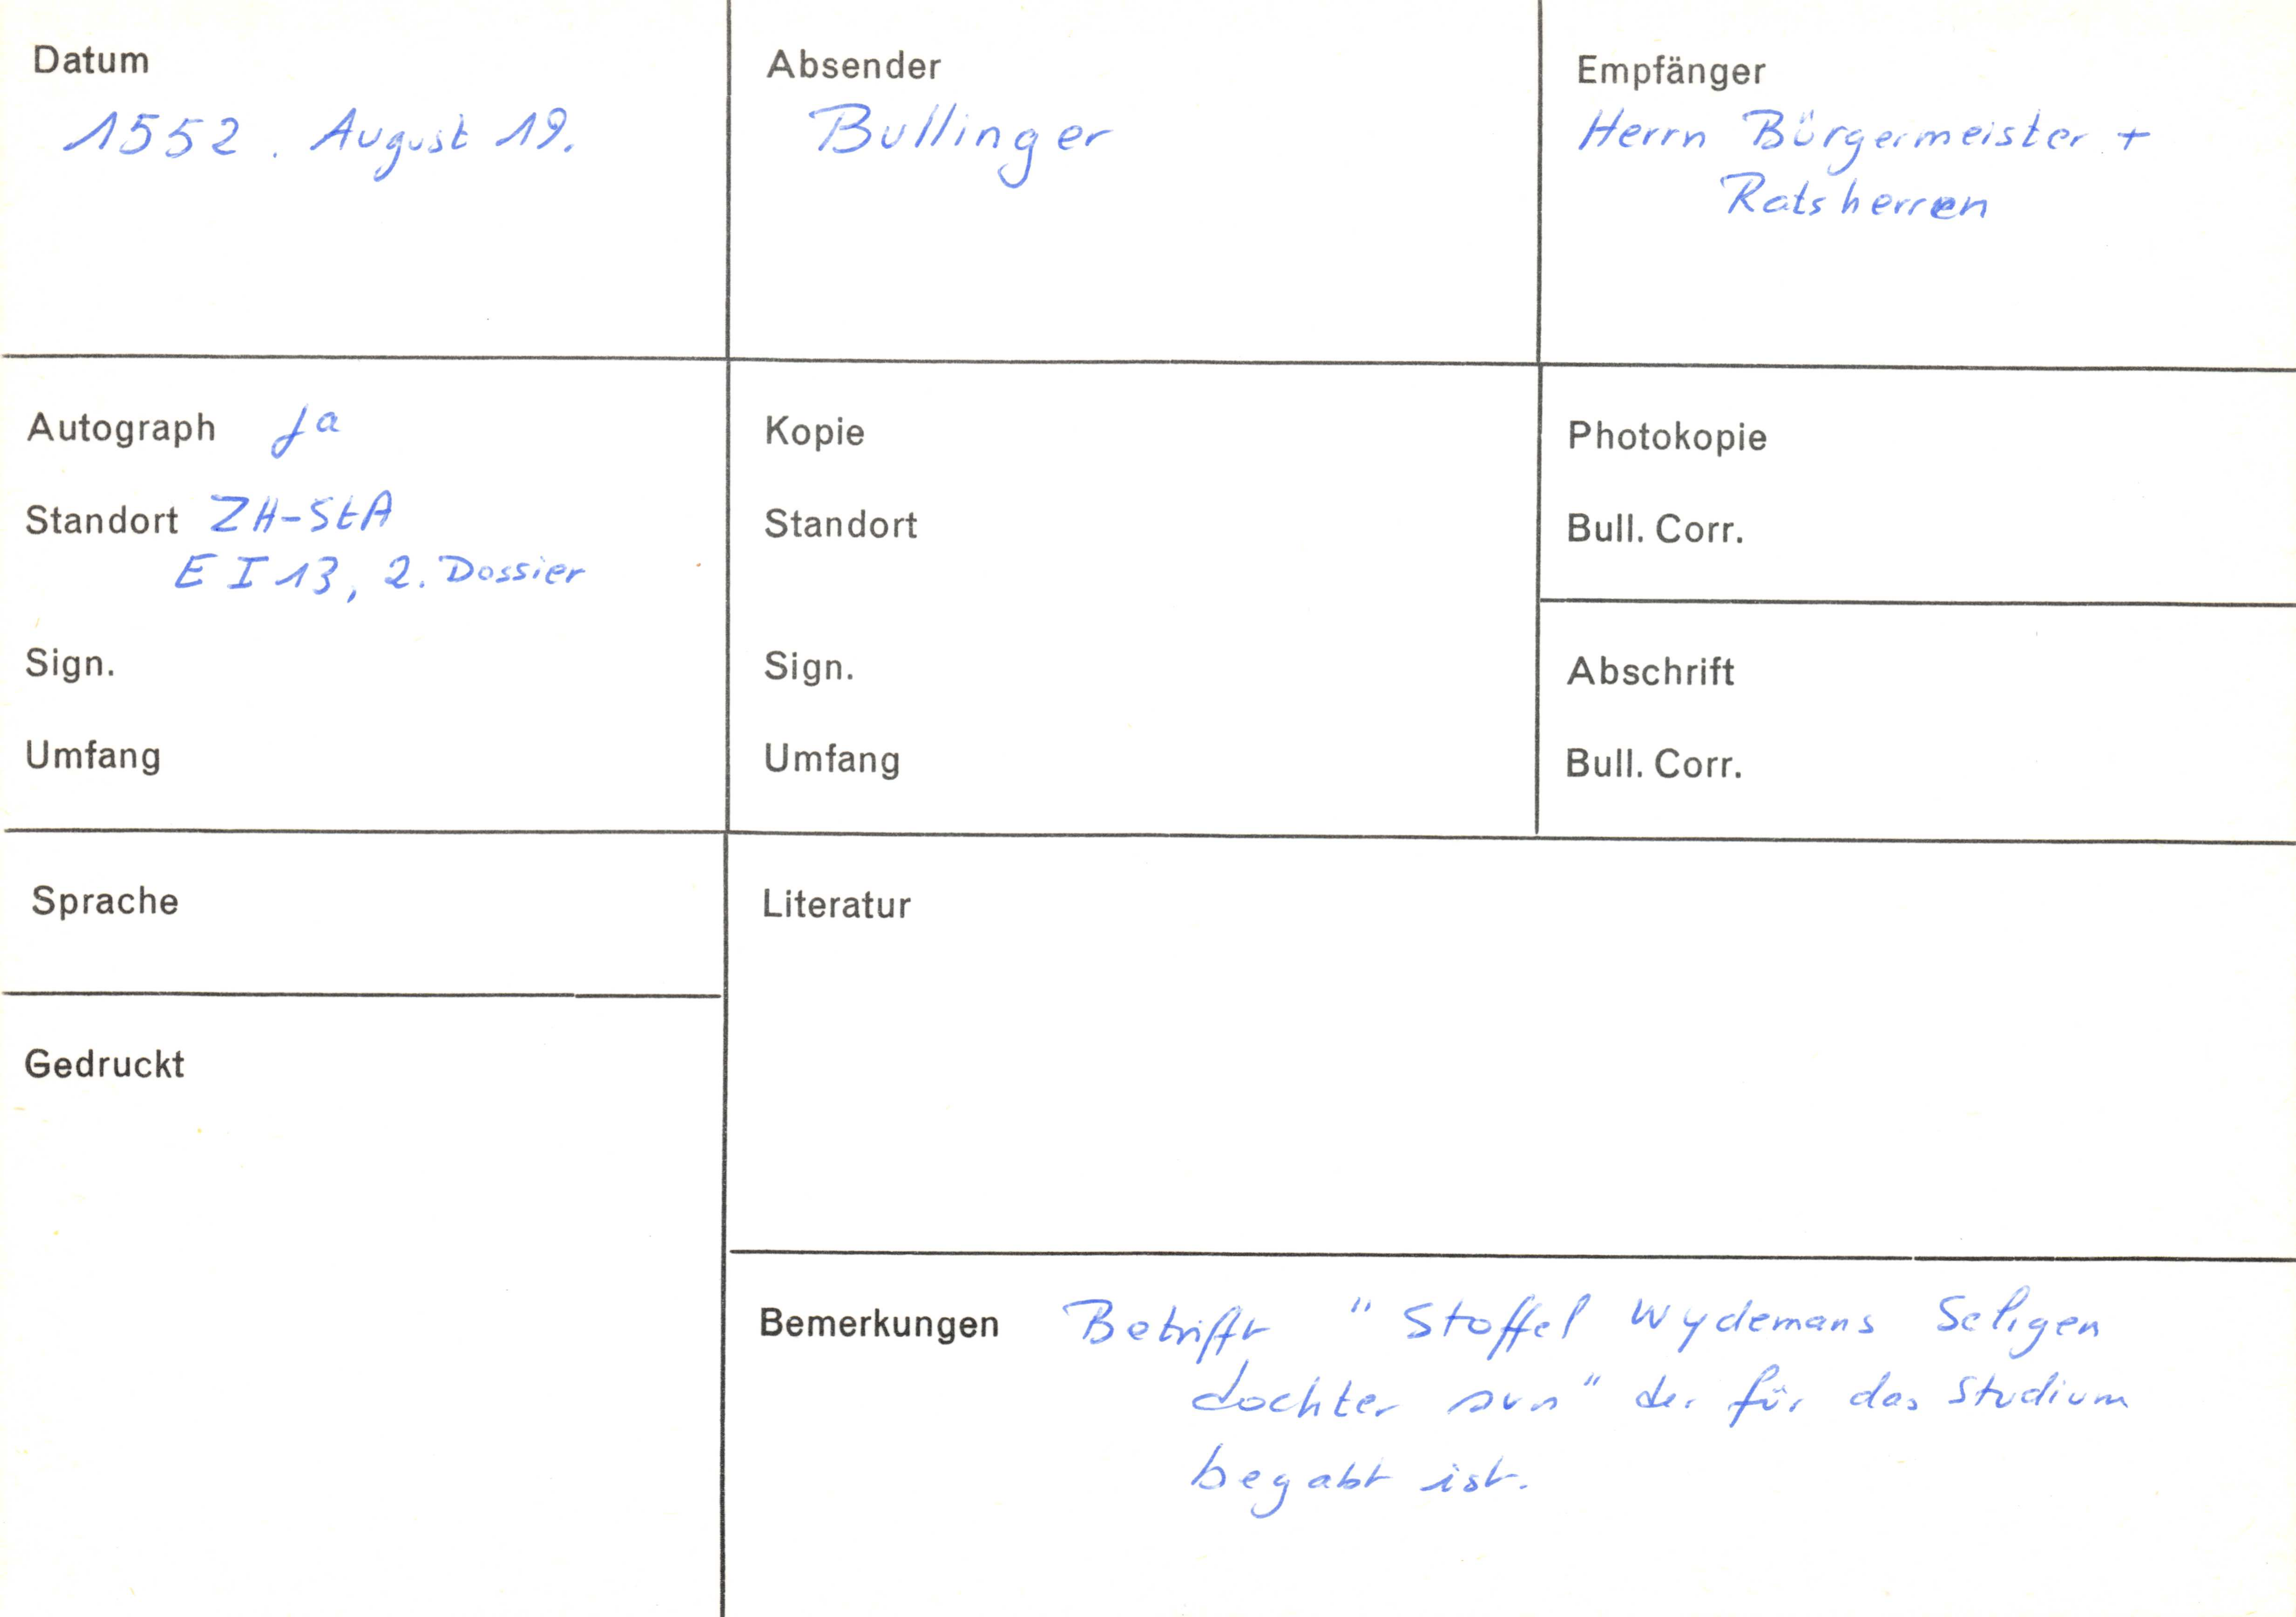 Datum
1552. August 19.
Absender
Bullinger
Empfänger
Herrn Bürgermeister +
Ratsherren
Autograph ja
Standort ZH-StA
E I 13, 2. Dossier
Sign.
Umfang
Kopie
Standort
Sign.
Umfang
Photokopie
Bull. Corr.
Abschrift
Bull. Corr.
Sprache
Gedruckt
Literatur
Bemerkungen Betrifft "Stoffel Wydemans Seligen
dochter sun" der für das Studium
begabt ist.